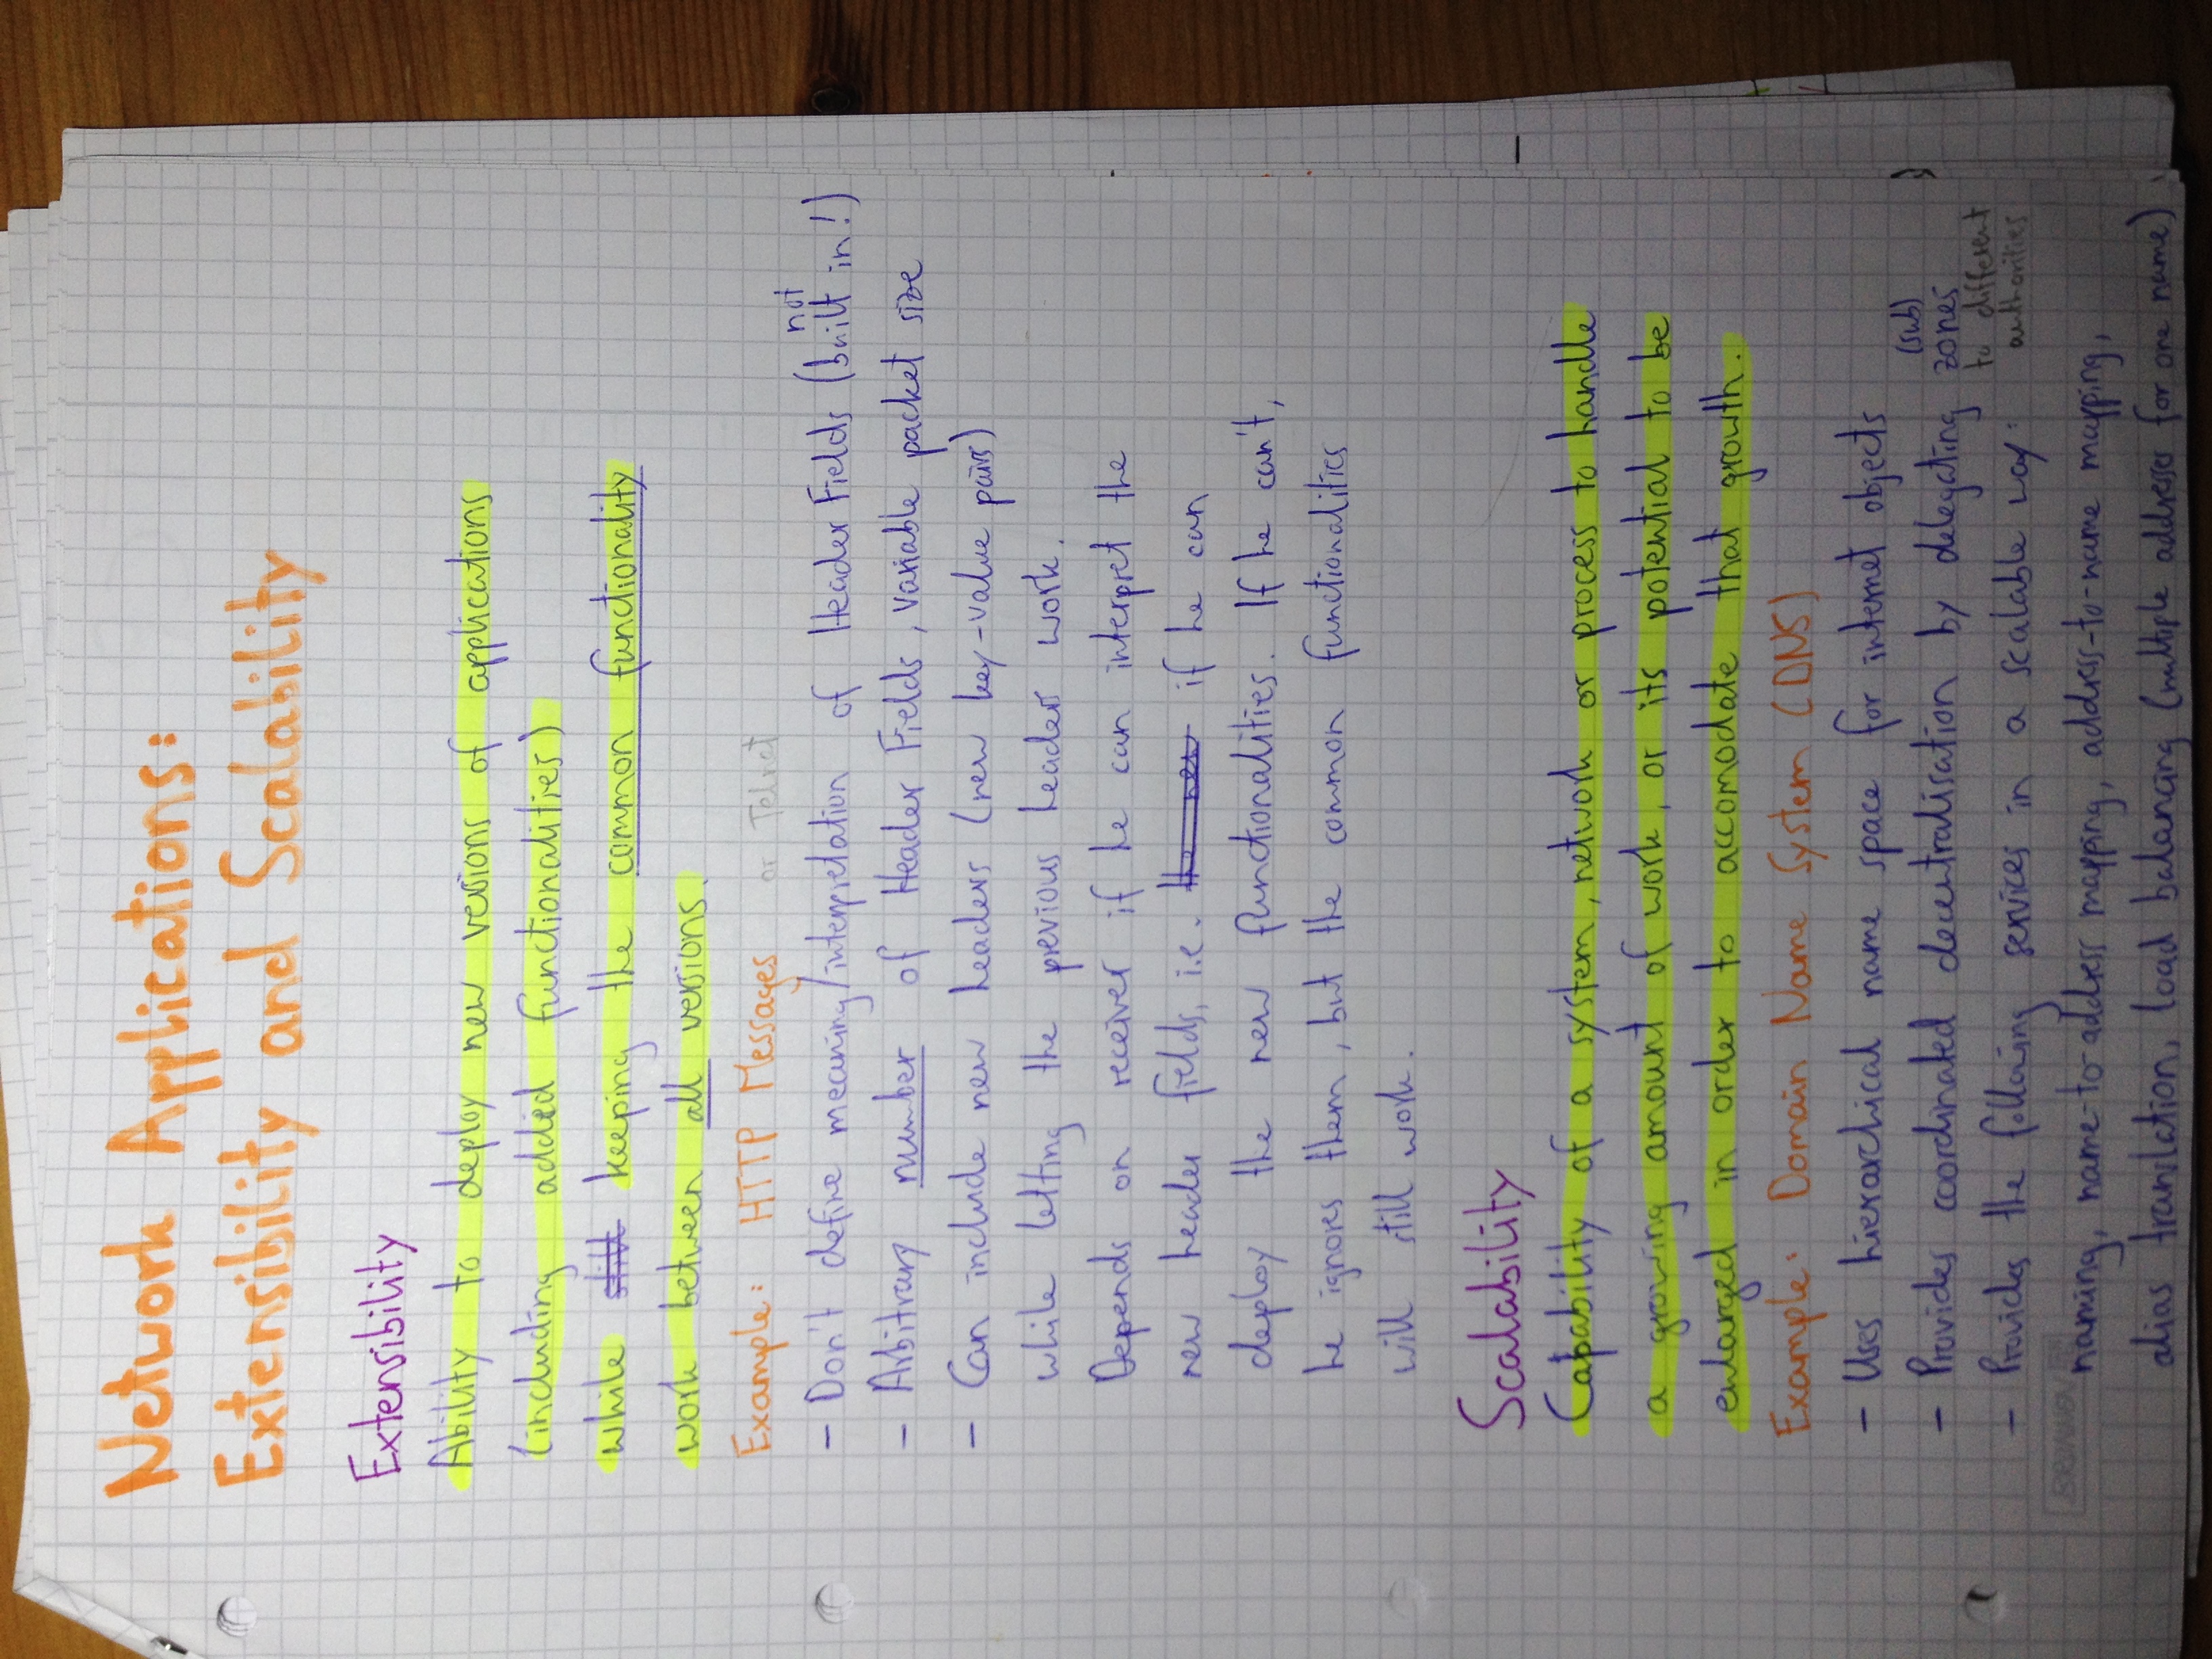 Network Applications:
Extensibility and Scalability
Extensibility
Ability to deploy new versions of applications
(including added functionalities)
while still keeping the common functionality
work between all versions.
Example: HTTP Messages or Telnet
- Don't define meaning/interpretation of Header Fields (not built in!)
- Arbitrary number of Header Fields, variable packet size
- Can include new headers (new key-value pairs)
while letting the previous headers work.
Depends on receiver if he can interpret the
new header fields, i.e. the new if he can
deploy the new functionalities. If he can't,
he ignores them, but the common functionalities
will still work.
Scalability
Capability of a system, network or process to handle
a growing amount of work, or its potential to be
enlarged in order to accomodate that growth.
Example: Domain Name System (DNS)
- Uses hierarchical name space for internet objects
- Provides coordinated decentralisation by delegating (sub) zones to different authorities
- Provides the following services in a scalable way:
naming, name-to-address mapping, address-to-name mapping,
alias translation, load balancing (multiple addresses for one name)